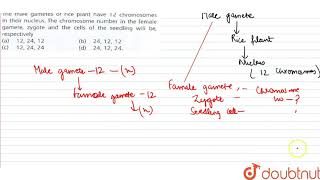 The male gametes of rice plant have 12 chromosomes
in their nucleus. The chromosome number in the female
gamete, zygote and the cells of the seedling will be,
respectively
(a) 12, 24, 12 (b) 24, 12, 12
(c) 12, 24, 24 (d) 24, 12, 24.
Male gamete
Rice plant
Nucleus
(12 chromosomes)
Male gamete - 12 - (n)
Female gamete - 12
(n)
Female gamete - Chromosome
Zygote - no - ?
Seedling cell -
doubtnut